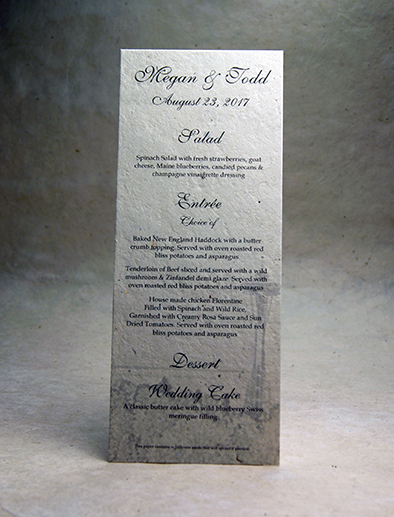 Megan & Todd
August 23, 2017
Salad
Spinach Salad with fresh strawberries, goat
cheese, Maine blueberries, candied pecans &
champagne vinaigrette dressing
Entrée
Choice of
Baked New England Haddock with a butter
crumb topping. Served with oven roasted red
bliss potatoes and asparagus
Tenderloin of Beef sliced and served with a wild
mushroom & Zinfandel demi glaze. Served with
oven roasted red bliss potatoes and asparagus
House made chicken Florentine
Filled with Spinach and Wild Rice,
Garnished with Creamy Rosa Sauce and Sun
Dried Tomatoes. Served with oven roasted red
bliss potatoes and asparagus
Dessert
Wedding Cake
A classic butter cake with wild blueberry Swiss
meringue filling
This paper contains wildflower seeds that will sprout if planted